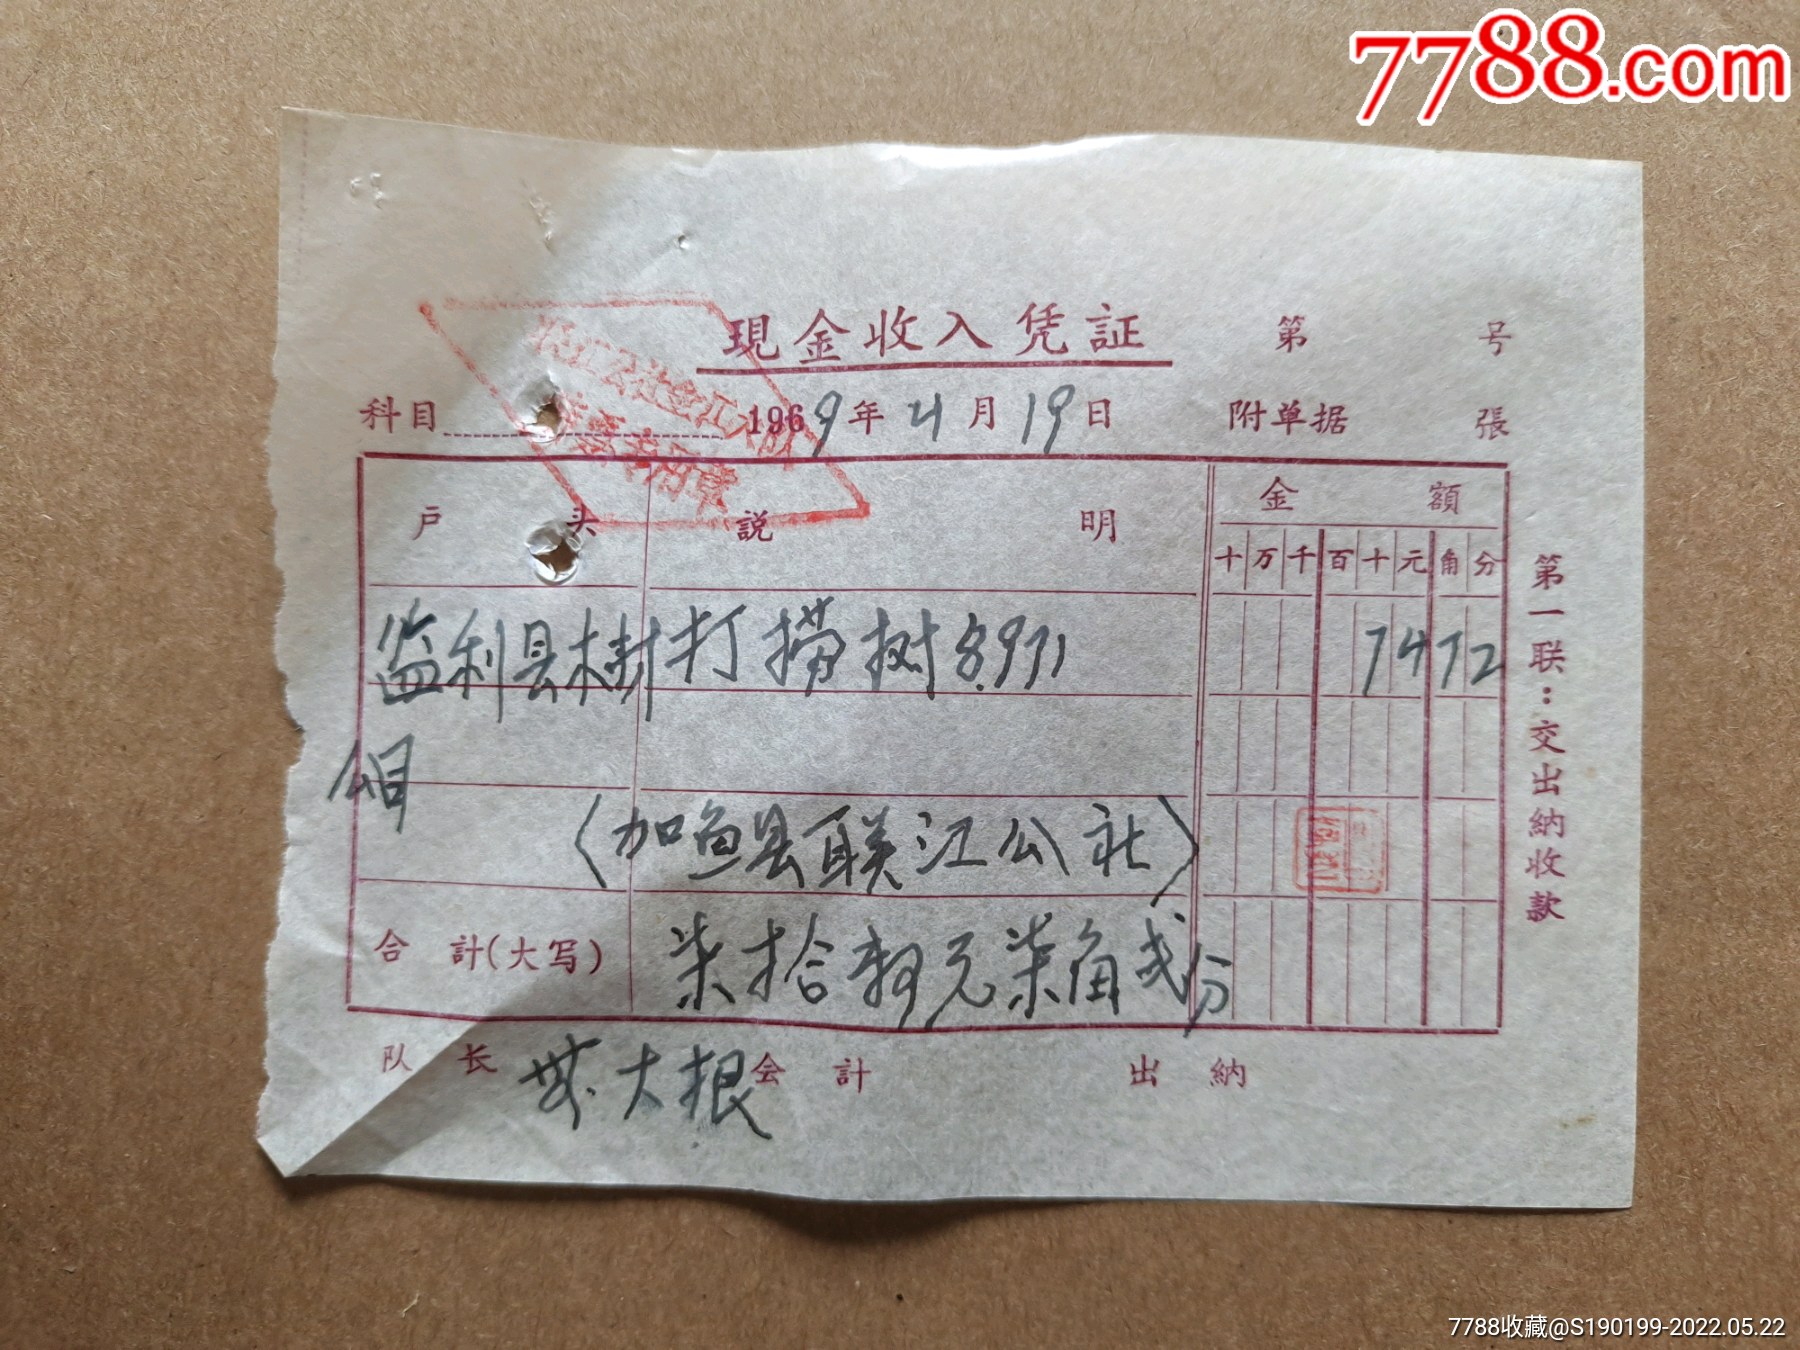 7788.com
現金收入凭証 第 号
科目 1969年4月19日 附单据 張
户头 説明 金額
十万千百十元角分
监利县樹 打捞树8.971 7472
(加鱼县联江公社)
合計(大写) 柒拾肆元柒角贰分
队长 大根 会計 出納
第一联:交出納收款
7788收藏@S190199-2022.05.22